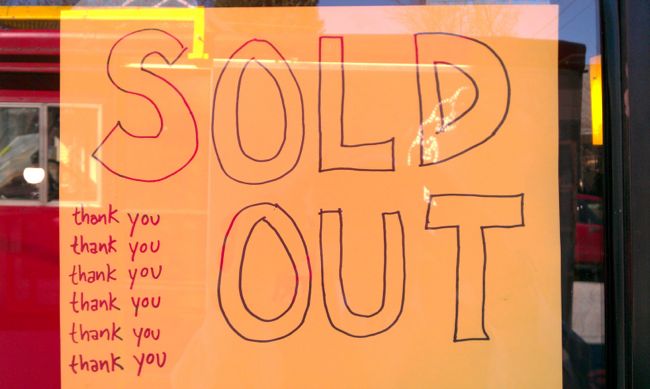 SOLD
OUT
thank you
thank you
thank you
thank you
thank you
thank you